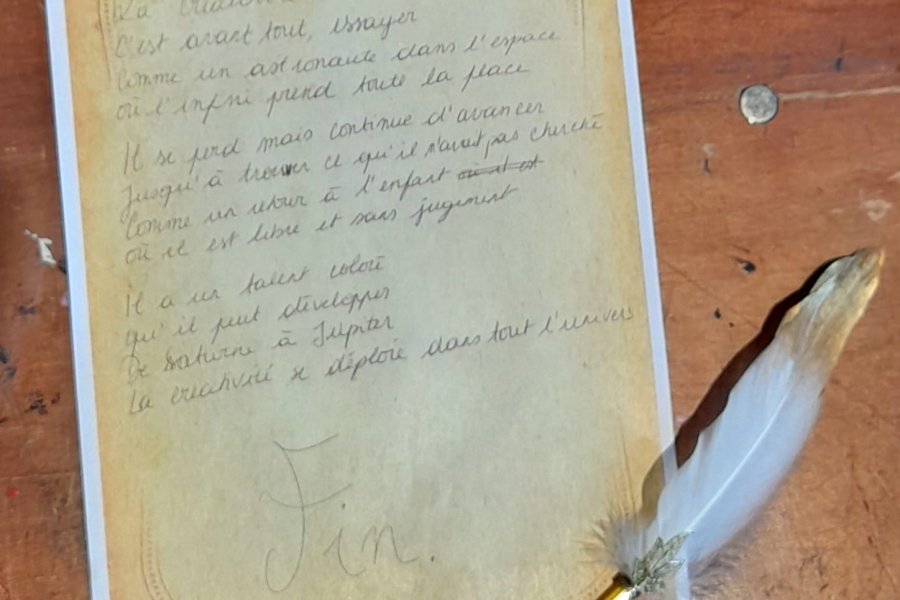 La créativité
C'est avant tout, essayer
Comme un astronaute dans l'espace
où l'infini prend toute la place
Il se perd mais continue d'avancer
Jusqu'à trouver ce qu'il n'avait pas cherché
Comme un retour à l'enfant où il est
où il est libre et sans jugement
Il a un talent coloré
qu'il peut développer
De Saturne à Jupiter
La créativité se déploie dans tout l'univers
Fin.